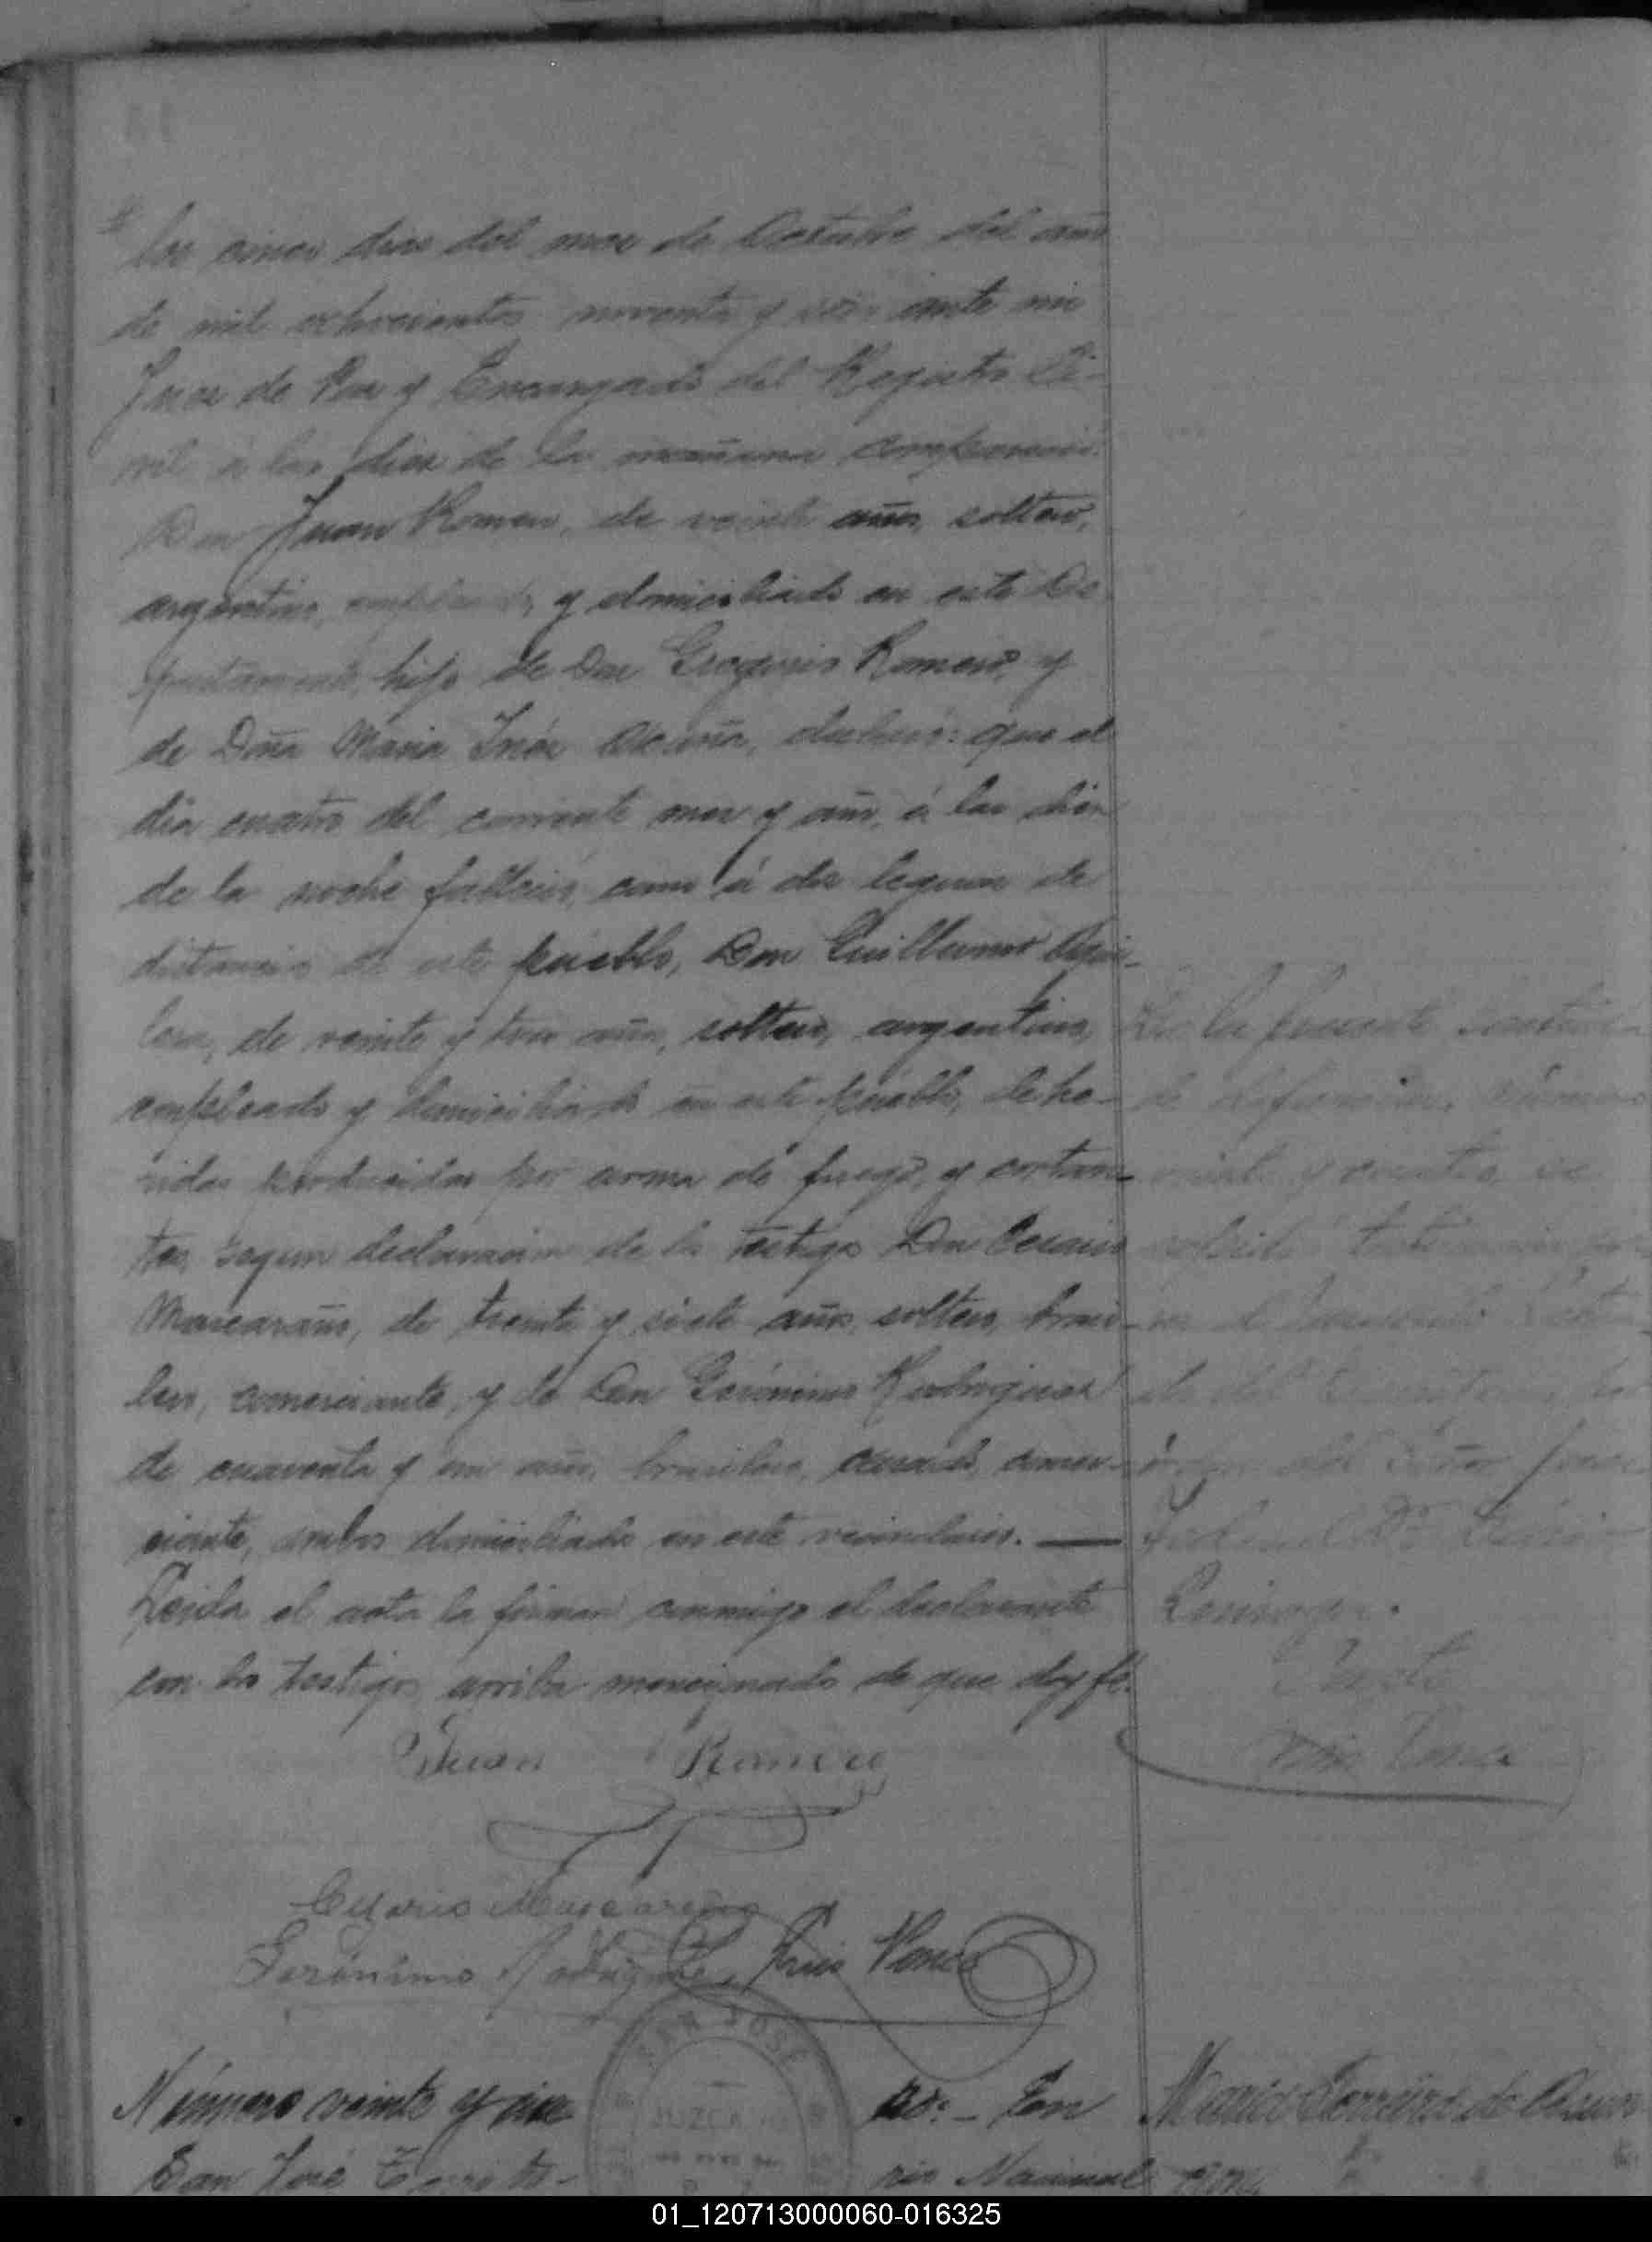 los cinco dias del mes de Octubre del año
de mil ochocientos noventa y ante mi
Juez de Paz y Encargado del Registro Ci-
vil á las diez de la mañana compareció
Don Juan Romero, de veinte años, soltero,
argentino, empleado, y domiciliado en este De
partamento, hijo de Don Gregorio Romero, y
de Doña Maria Inés Acuña, declaró: que el
dia cuatro del corriente mes y año, á las diez
de la noche falleció, como á dos leguas de
distancia de este pueblo, Don Guillermo
de veinte y tres años, soltero, argentino,
empleado y domiciliado en este pueblo, de he-
ridas producidas por arma de fuego, y cortan-
tes, segun declaracion de los testigos Don Cesario
Mascaraño, de treinta y siete años, soltero, brasi-
lero, comerciante, y de Don Gerónimo Rodriguez
de cuarenta y un años, brasilero, casado, comer-
ciante, ambos domiciliados en este vecindario. —
Leida el acta la firman conmigo el declarante
con los testigos arriba mencionados de que doy fé.
Juan Romero
Cesario Mascareño
Gerónimo Rodriguez Luis Ponce
SAN JOSÉ
JUZGADO
Número veinte y cin co. - En
San José Territo- rio Nacional
De la presente
de defuncion, número
veinte y cuatro, se
del Señor Juez
Federal Dr.
Luis Ponce
Maria Ferreira de